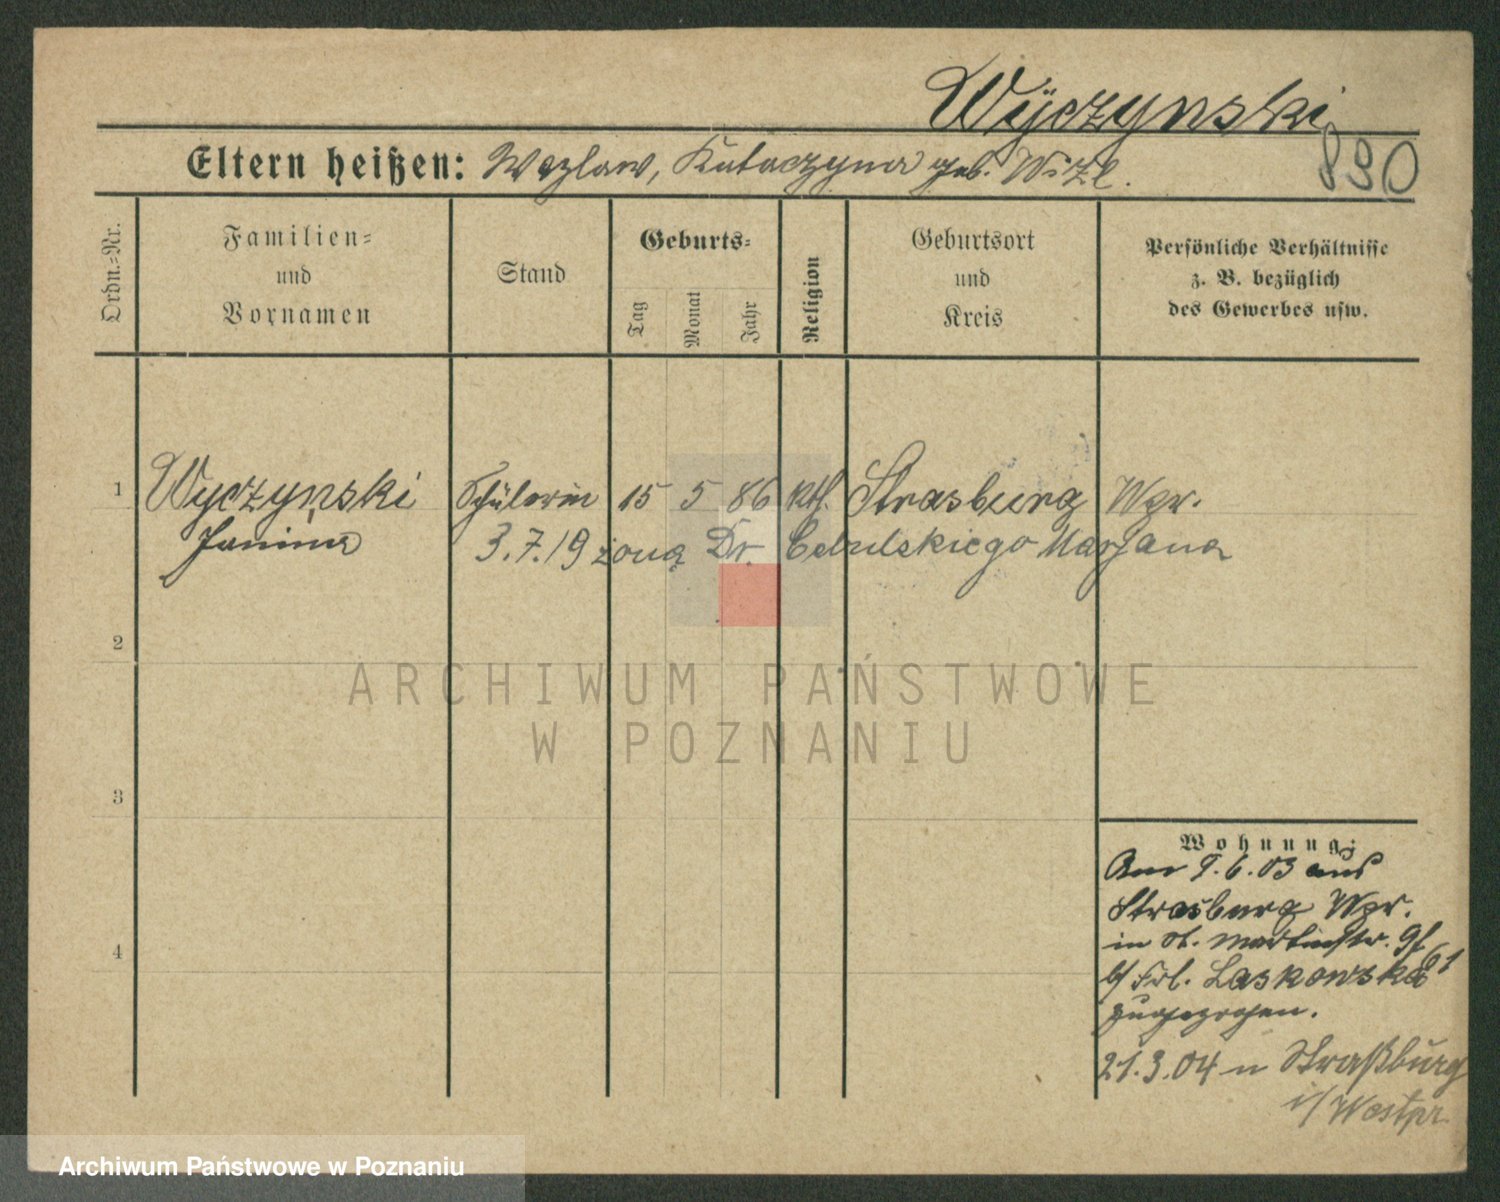 Wÿczynski
890
Eltern heißen: Wazlaw, Katarzyna geb. Witzl.
Ordn.-Nr.
Familien-
und
Vornamen
Stand
Geburts-
Tag
Monat
Jahr
Religion
Geburtsort
und
Kreis
Persönliche Verhältnisse
z. B. bezüglich
des Gewerbes usw.
1
Wyczynski Schülerin 15 5 86 kth. Strasburg Wpr.
Janina 3.7.19 żoną Dr. Cebulskiego Marjana
2
3
4
Wohnung:
Am 9.6.03 aus
Strasburg Wpr.
in St. Martinstr.
61
b/ Frl. Laskowska
zugezogen.
21.3.04 n Straßburg
i/ Westpr.
ARCHIWUM PAŃSTWOWE
W POZNANIU
Archiwum Państwowe w Poznaniu